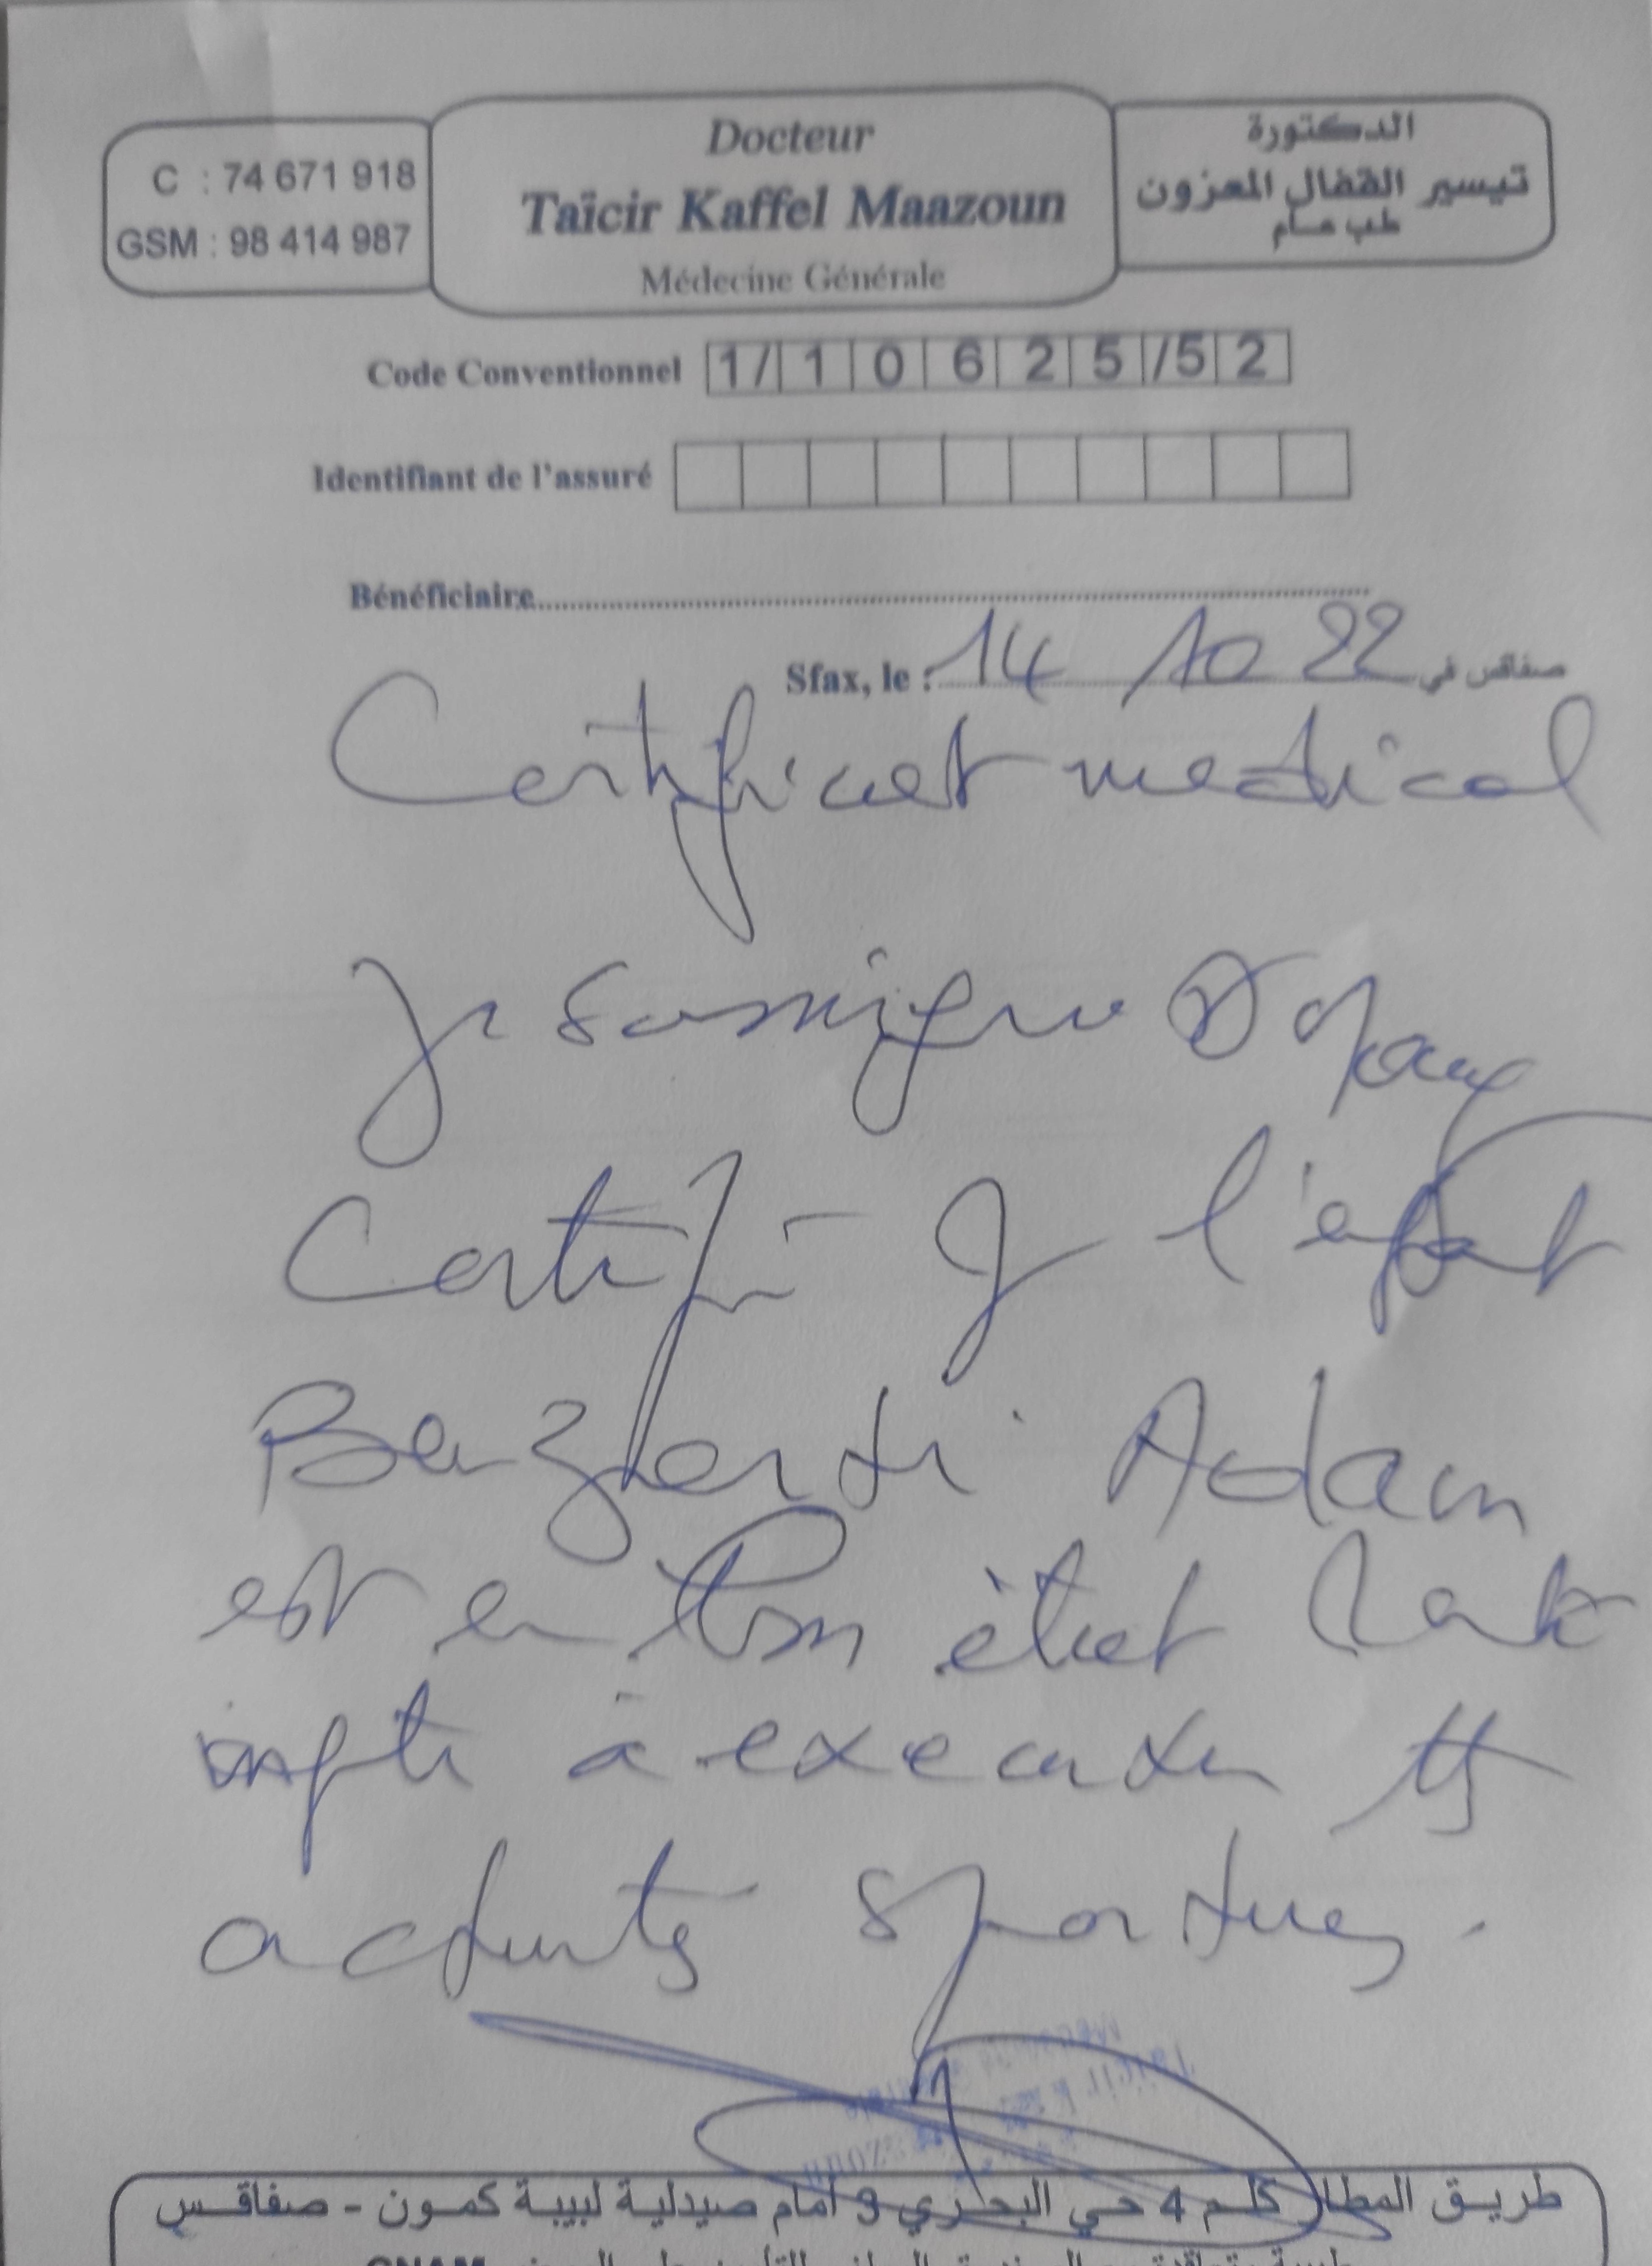 C : 74 671 918
GSM : 98 414 987
Docteur
Taïcir Kaffel Maazoun
Médecine Générale
الدكتورة
تيسير القفال المعزون
طب عام
Code Conventionnel 1/ 1 0 6 2 5 /5 2
Identifiant de l'assuré
Bénéficiaire
Sfax, le : 14 10 22 صفاقس في
Certificat medical
Je soussigne Dr
Certifie q l'enfant
Adam
est en bon état
à executer tts
activités sportives.
طريق المطار كلم 4 حي البحري 3 أمام صيدلية لبيبة كمون - صفاقس
CNAM